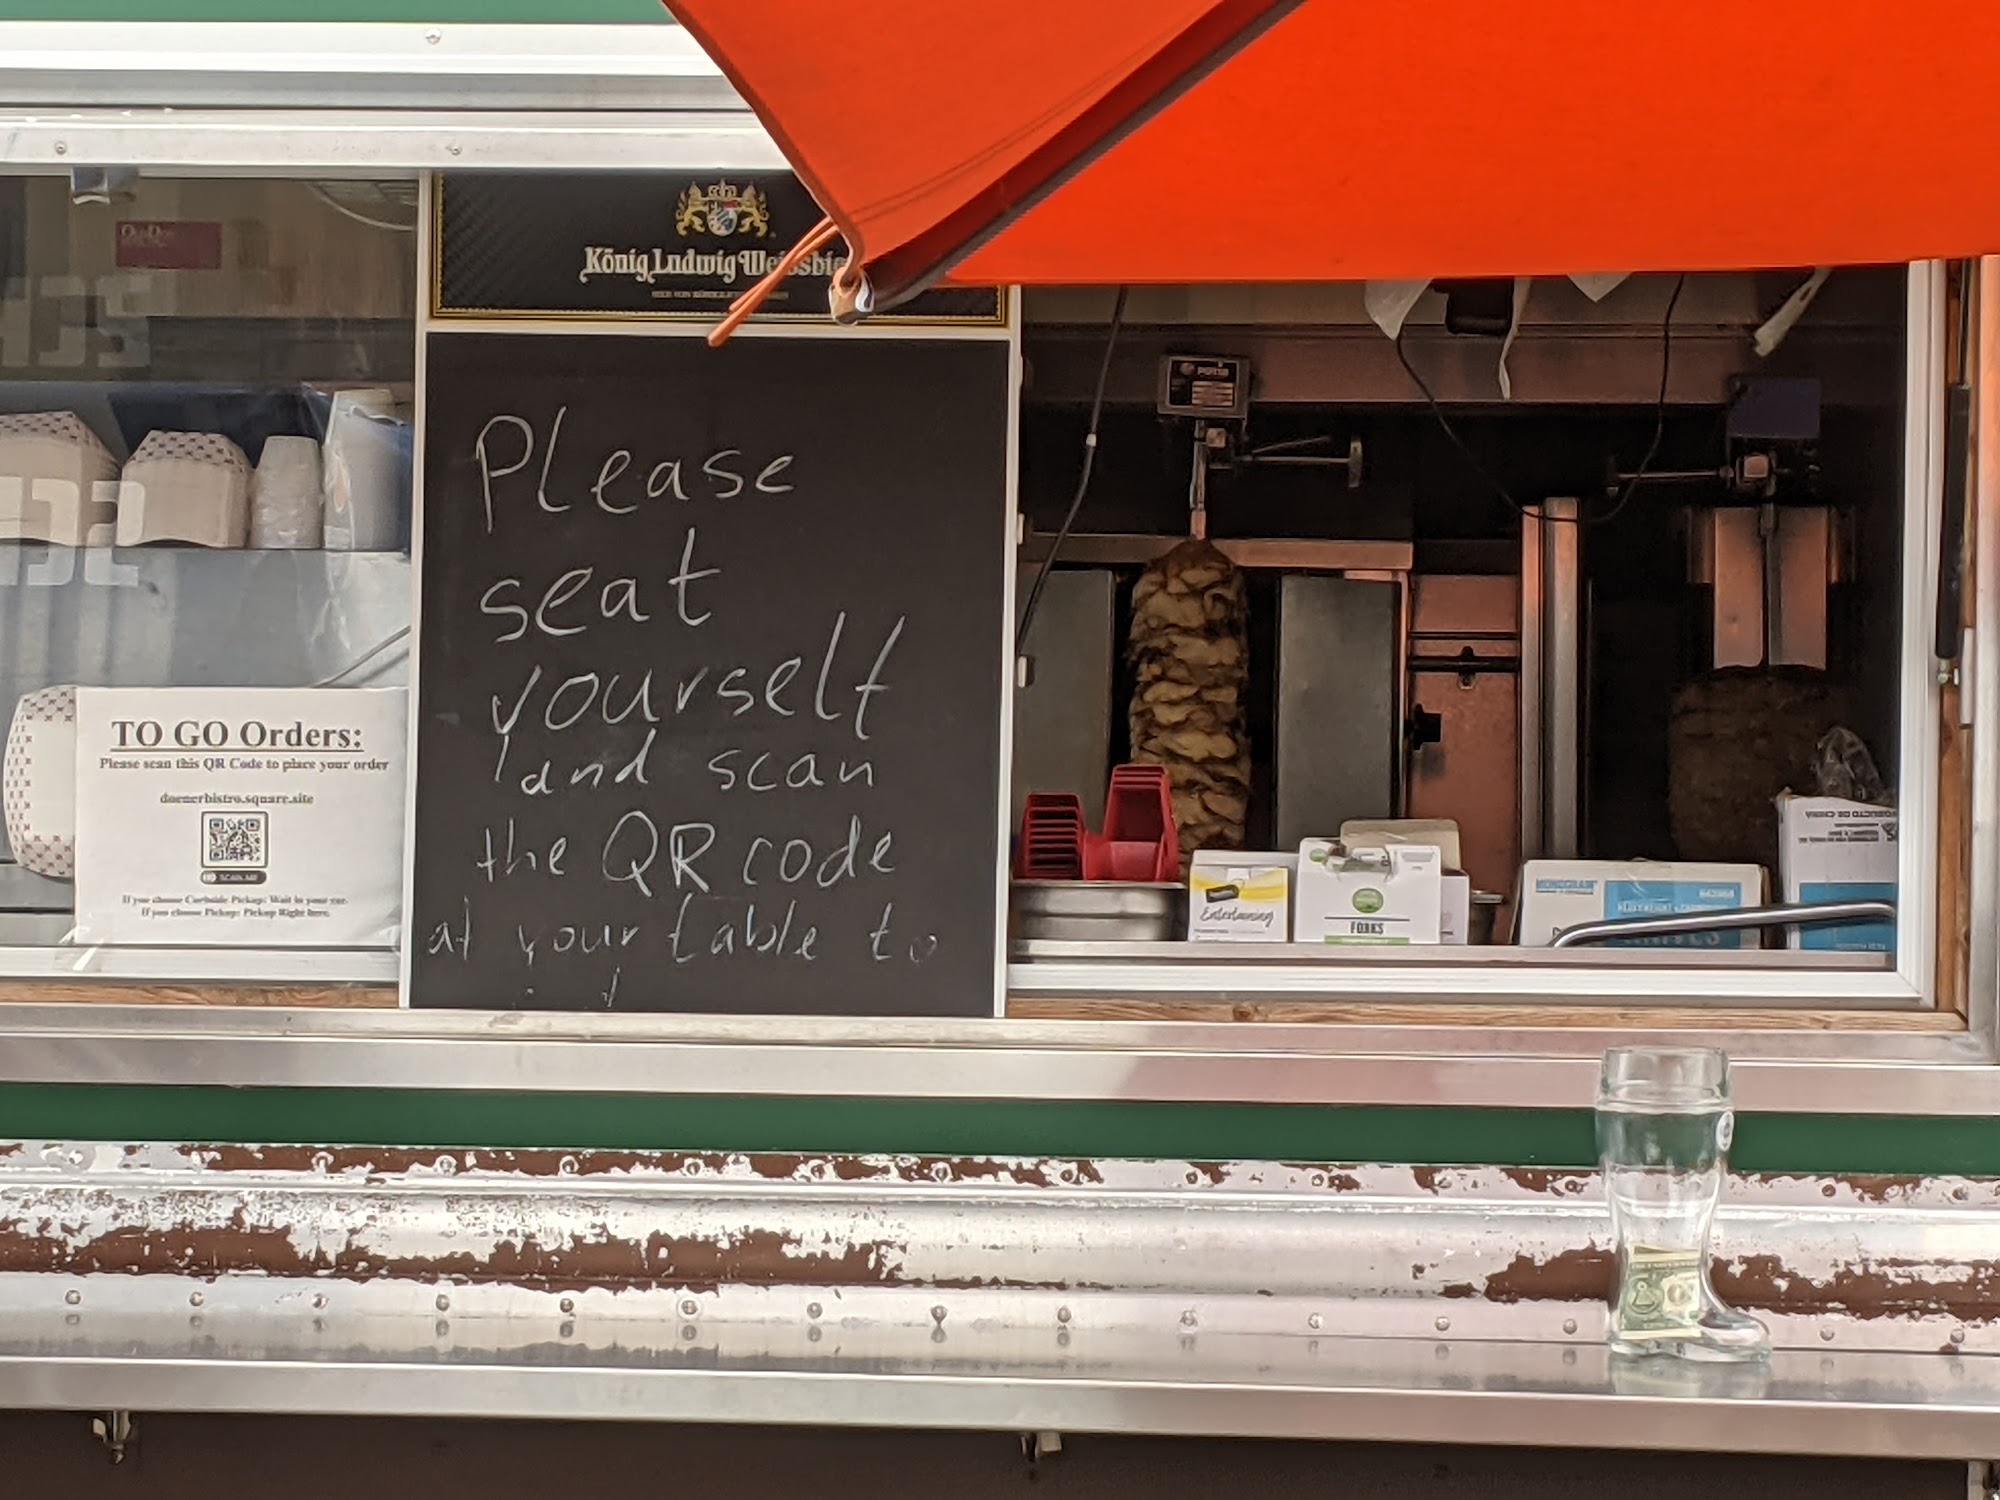 König Ludwig Weissbie
Please
seat
yourself
and scan
the QR code
at your table to
TO GO Orders:
Please scan this QR Code to place your order
doenerbistro.square.site
SCAN ME
If you choose Curbside Pickup: Wait in your car.
If you choose Pickup: Pickup Right here.
POTIS
Entertaining
FORKS
PRODUCTO DE CHINA